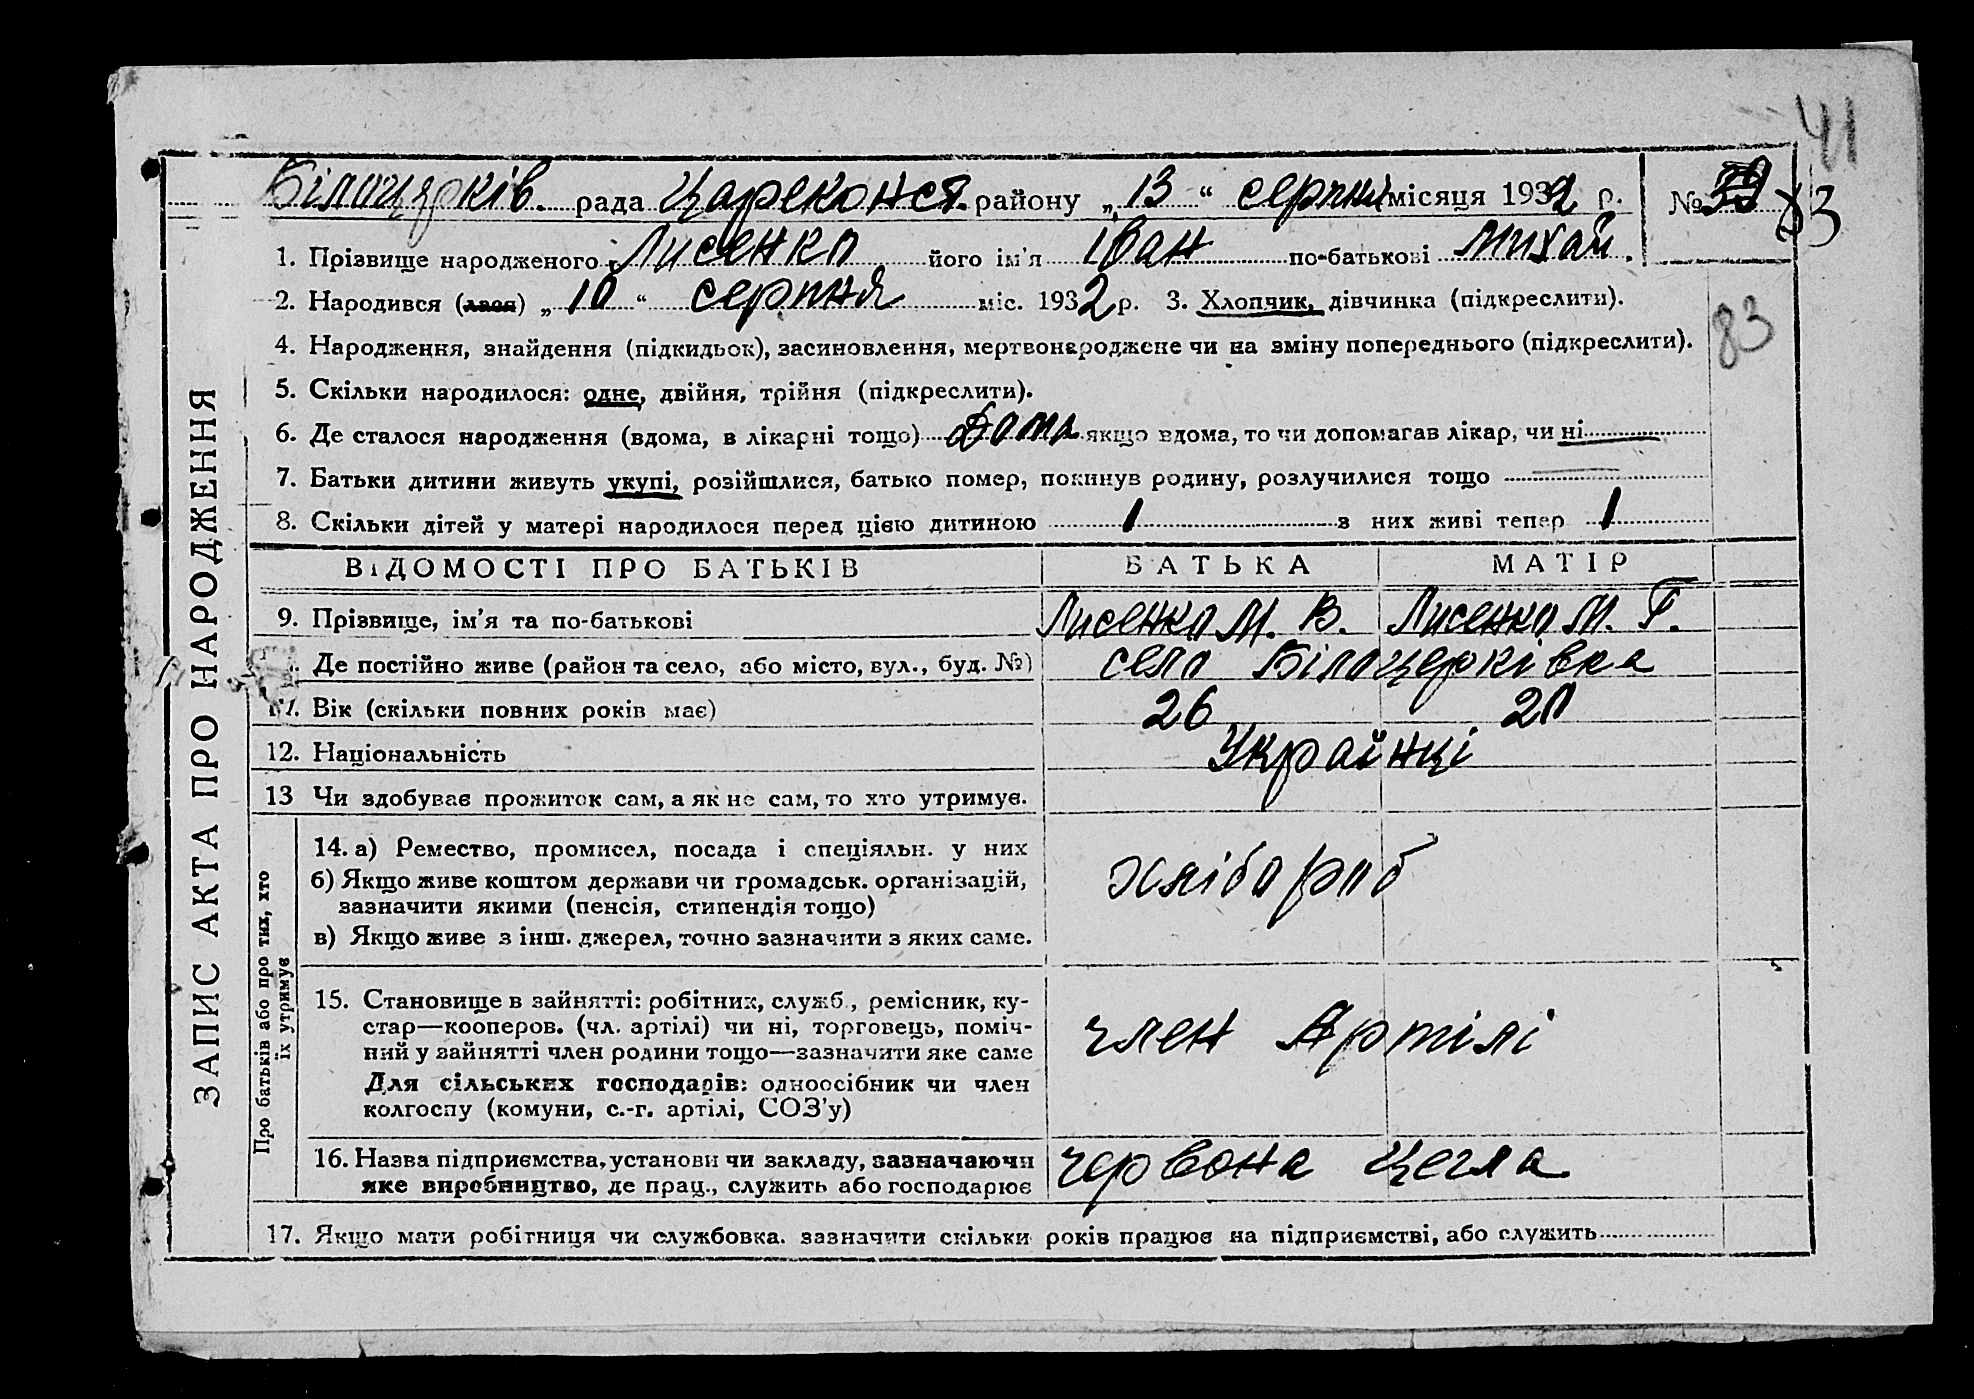 41
Білоцерків. рада Цареконст. району „13“ серпня місяця 1932 р. № 39 83
1. Прізвище народженого Лисенко його ім'я Іван по-батькові Михай.
2. Народився (лася) „10“ серпня міс. 1932 р. 3. Хлопчик, дівчинка (підкреслити).
83
4. Народження, знайдення (підкидьок), засиновлення, мертвонароджене чи на зміну попереднього (підкреслити).
5. Скільки народилося: одне, двійня, трійня (підкреслити).
6. Де сталося народження (вдома, в лікарні тощо) Дома якщо вдома, то чи допомагав лікар, чи ні
7. Батьки дитини живуть укупі, розійшлися, батько помер, покинув родину, розлучилися тощо
8. Скільки дітей у матері народилося перед цією дитиною 1 з них живі тепер 1
ЗАПИС АКТА ПРО НАРОДЖЕННЯ
ВІДОМОСТІ ПРО БАТЬКІВ БАТЬКА МАТІР
9. Прізвище, ім'я та по-батькові Лисенко М. В. Лисенко М. Г.
Де постійно живе (район та село, або місто, вул., буд. №) село Білоцерківка
11. Вік (скільки повних років має) 26 20
12. Національність Українці
13 Чи здобуває прожиток сам, а як не сам, то хто утримує.
Про батьків або про тих, хто їх утримує
14. а) Ремество, промисел, посада і спеціяльн. у них
б) Якщо живе коштом держави чи громадськ. організацій,
зазначити якими (пенсія, стипендія тощо)
в) Якщо живе з інш. джерел, точно зазначити з яких саме.
хлібороб
15. Становище в зайнятті: робітник, служб., ремісник, ку-
стар—кооперов. (чл. артілі) чи ні, торговець, поміч-
ний у зайнятті член родини тощо—зазначити яке саме
Для сільських господарів: одноосібник чи член
колгоспу (комуни, с.-г. артілі, СОЗ'у)
член Артілі
16. Назва підприємства, установи чи закладу, зазначаючи
яке виробництво, де прац., служить або господарює
червона цегла
17. Якщо мати робітниця чи службовка. зазначити скільки років працює на підприємстві, або служить